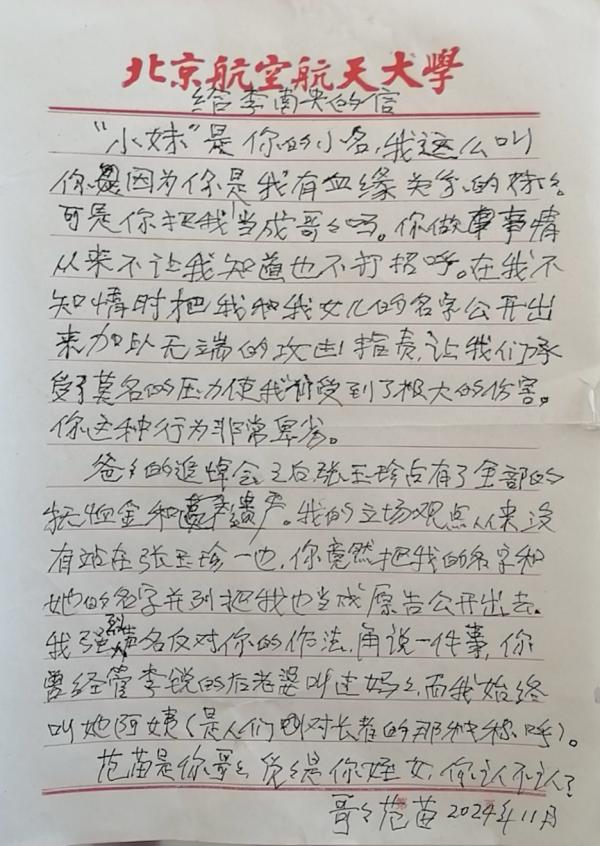 北京航空航天大學
给李南央的信
“小妹”是你的小名，我这么叫
你因为你是我有血缘关系的妹々。
可是你把我当成哥々吗。你做事情
从来不让我知道也不打招呼。在我不
知情时把我和我女儿的名字公开出
来加以无端的攻击指责，让我们承
受了莫名的压力使我们受到了极大的伤害。
你这种行为非常卑劣。
爸々的追悼会之后张玉珍占有了全部的
抚恤金和遗产。我的立场观点从来没
有站在张玉珍一边，你竟然把我的名字和
她的名字并列把我也当成原告公开出去。
我强烈声名反对你的作法，再说一件事，你
曾经管李锐的后老婆叫过妈々，而我始终
叫她阿姨（是人们对长者的那种称呼）。
范苗是你哥々 是你侄女，你认不认？
哥々范苗 2024年11月